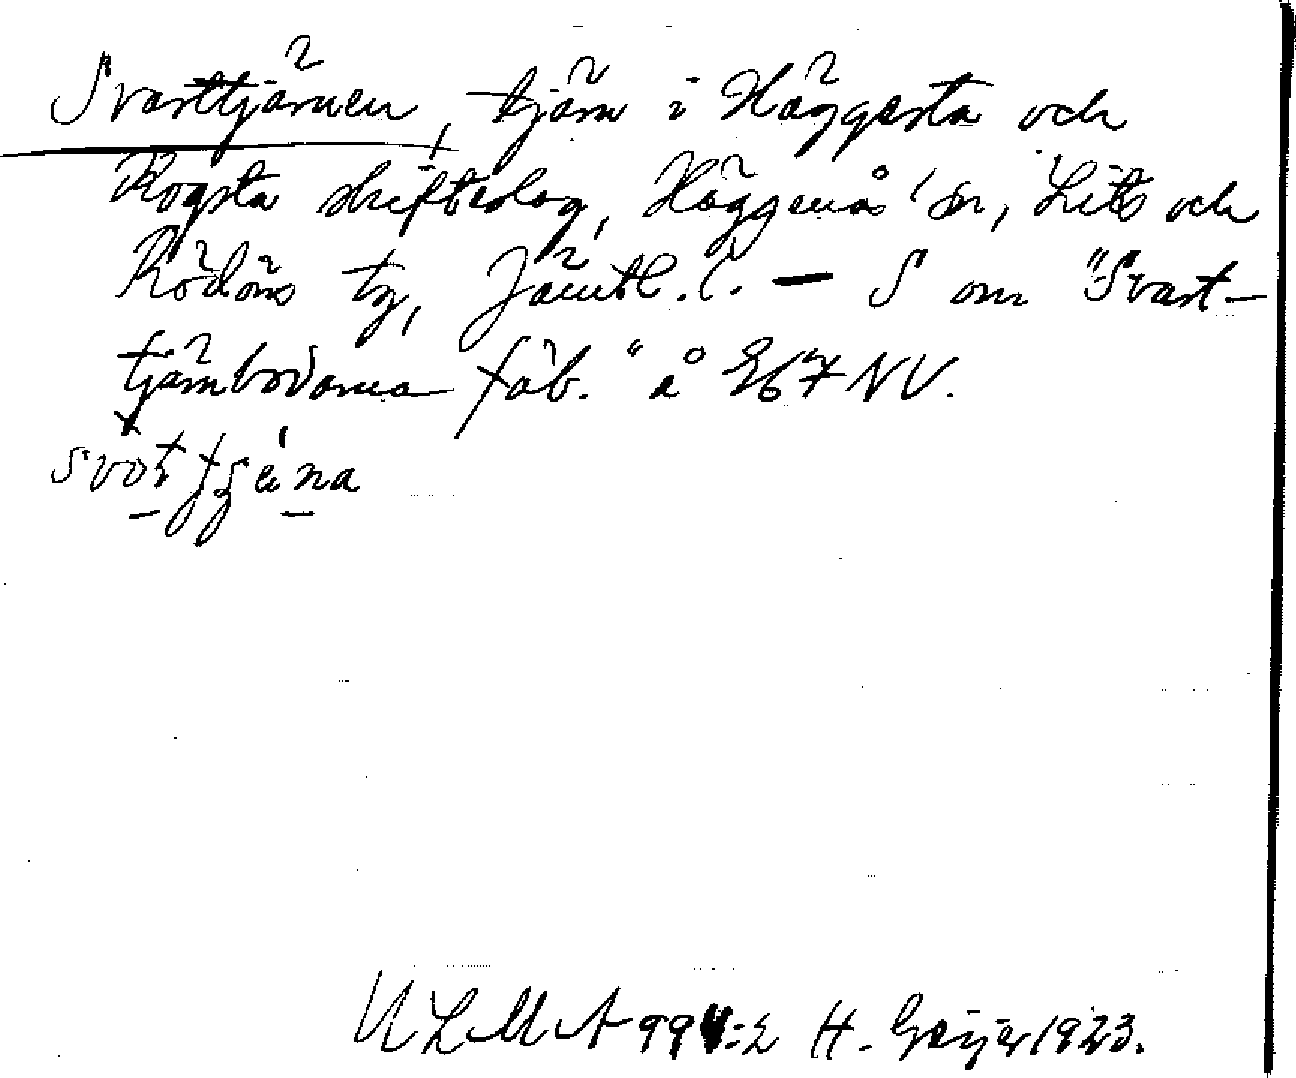 Svarttjärnen, tjärn i Häggesta och
Kogsta skifteslag, Häggenås sn, Lits och
Rödöns tg, Jämtl. l. — S om "Svart-
tjärnbodarna fäb." å Gk 67 NV.
svòttjæ̀na
ULMA 991:2 H. Geijer 1923.